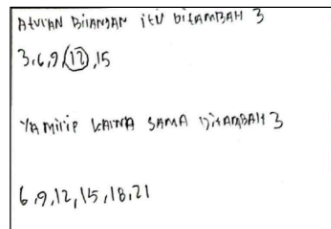 Aturan Bilangan itu ditambah 3
3,6,9,12,15
ya mirip karna sama ditambah 3
6,9,12,15,18,21